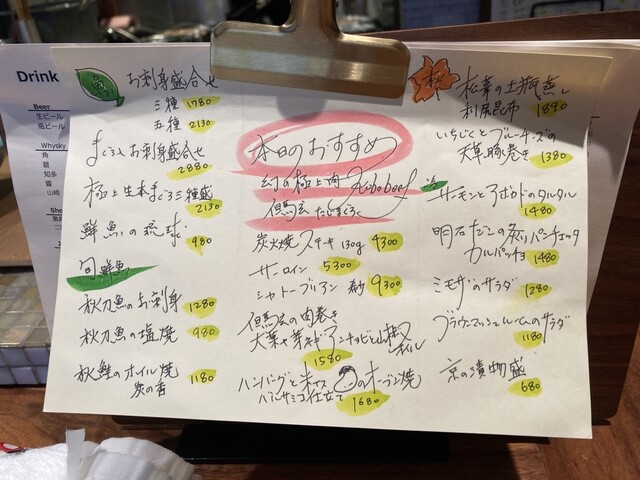 Drink
Beer
生ビール
瓶ビール
Whysky
角
碧
知多
響
山崎
魚
お刺身盛合せ
三種 1780
五種 2130
まぐろ入お刺身盛合せ
2880
極上生本まぐろ三種盛
2130
鮮魚の琉球 980
旬鮮魚
秋刀魚のお刺身 1280
秋刀魚の塩焼 980
秋鮭のホイル焼 1180
炭の香
本日のおすすめ
幻の極上肉 Kubobeef
但馬玄 たじまぐろ
炭火焼ステーキ 130g 4300
サーロイン 5300
シャトーブリアン 9300
但馬玄の肉巻き
大葉や芽ネギ アンチョビと山椒オイル
1580
ハンバーグと のオーブン焼
バルサミコ仕立て 1680
秋
松茸の土瓶蒸し
利尻昆布 1890
いちじくとブルーチーズの
天草豚巻き 1380
サーモンとアボカドのタルタル
1480
明石だこの炙りパンチェッタ
カルパッチョ 1480
ミモザのサラダ 1280
ブラウンマッシュルームのサラダ
1180
京の漬物盛
680